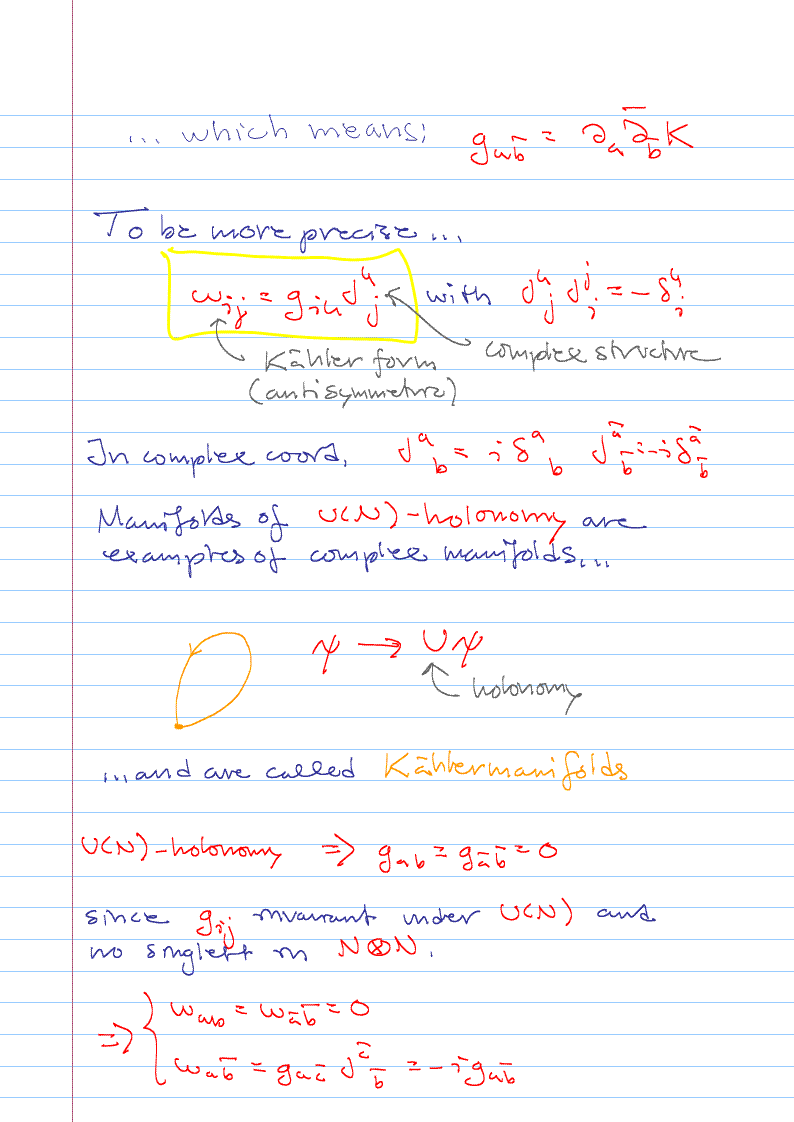 ... which means: g_{ab̄} = ∂_a ∂̄_b̄ K
To be more precise...
ω_{ij} = g_{ik} J^k_j with J^k_j J^j_i = -δ^k_i
Kähler form complex structure
(antisymmetric)
In complex coord. J^a_b = i δ^a_b J^ā_b̄ = -i δ^ā_b̄
Manifolds of U(N)-holonomy are
examples of complex manifolds...
ψ → Uψ
holonomy
...and are called Kähler manifolds
U(N)-holonomy ⇒ g_{ab} = g_{āb̄} = 0
since g_{ij} invariant under U(N) and
no singlett in N⊗N.
⇒ { ω_{ab} = ω_{āb̄} = 0
ω_{ab̄} = g_{ac̄} J^c̄_b̄ = -i g_{ab̄}